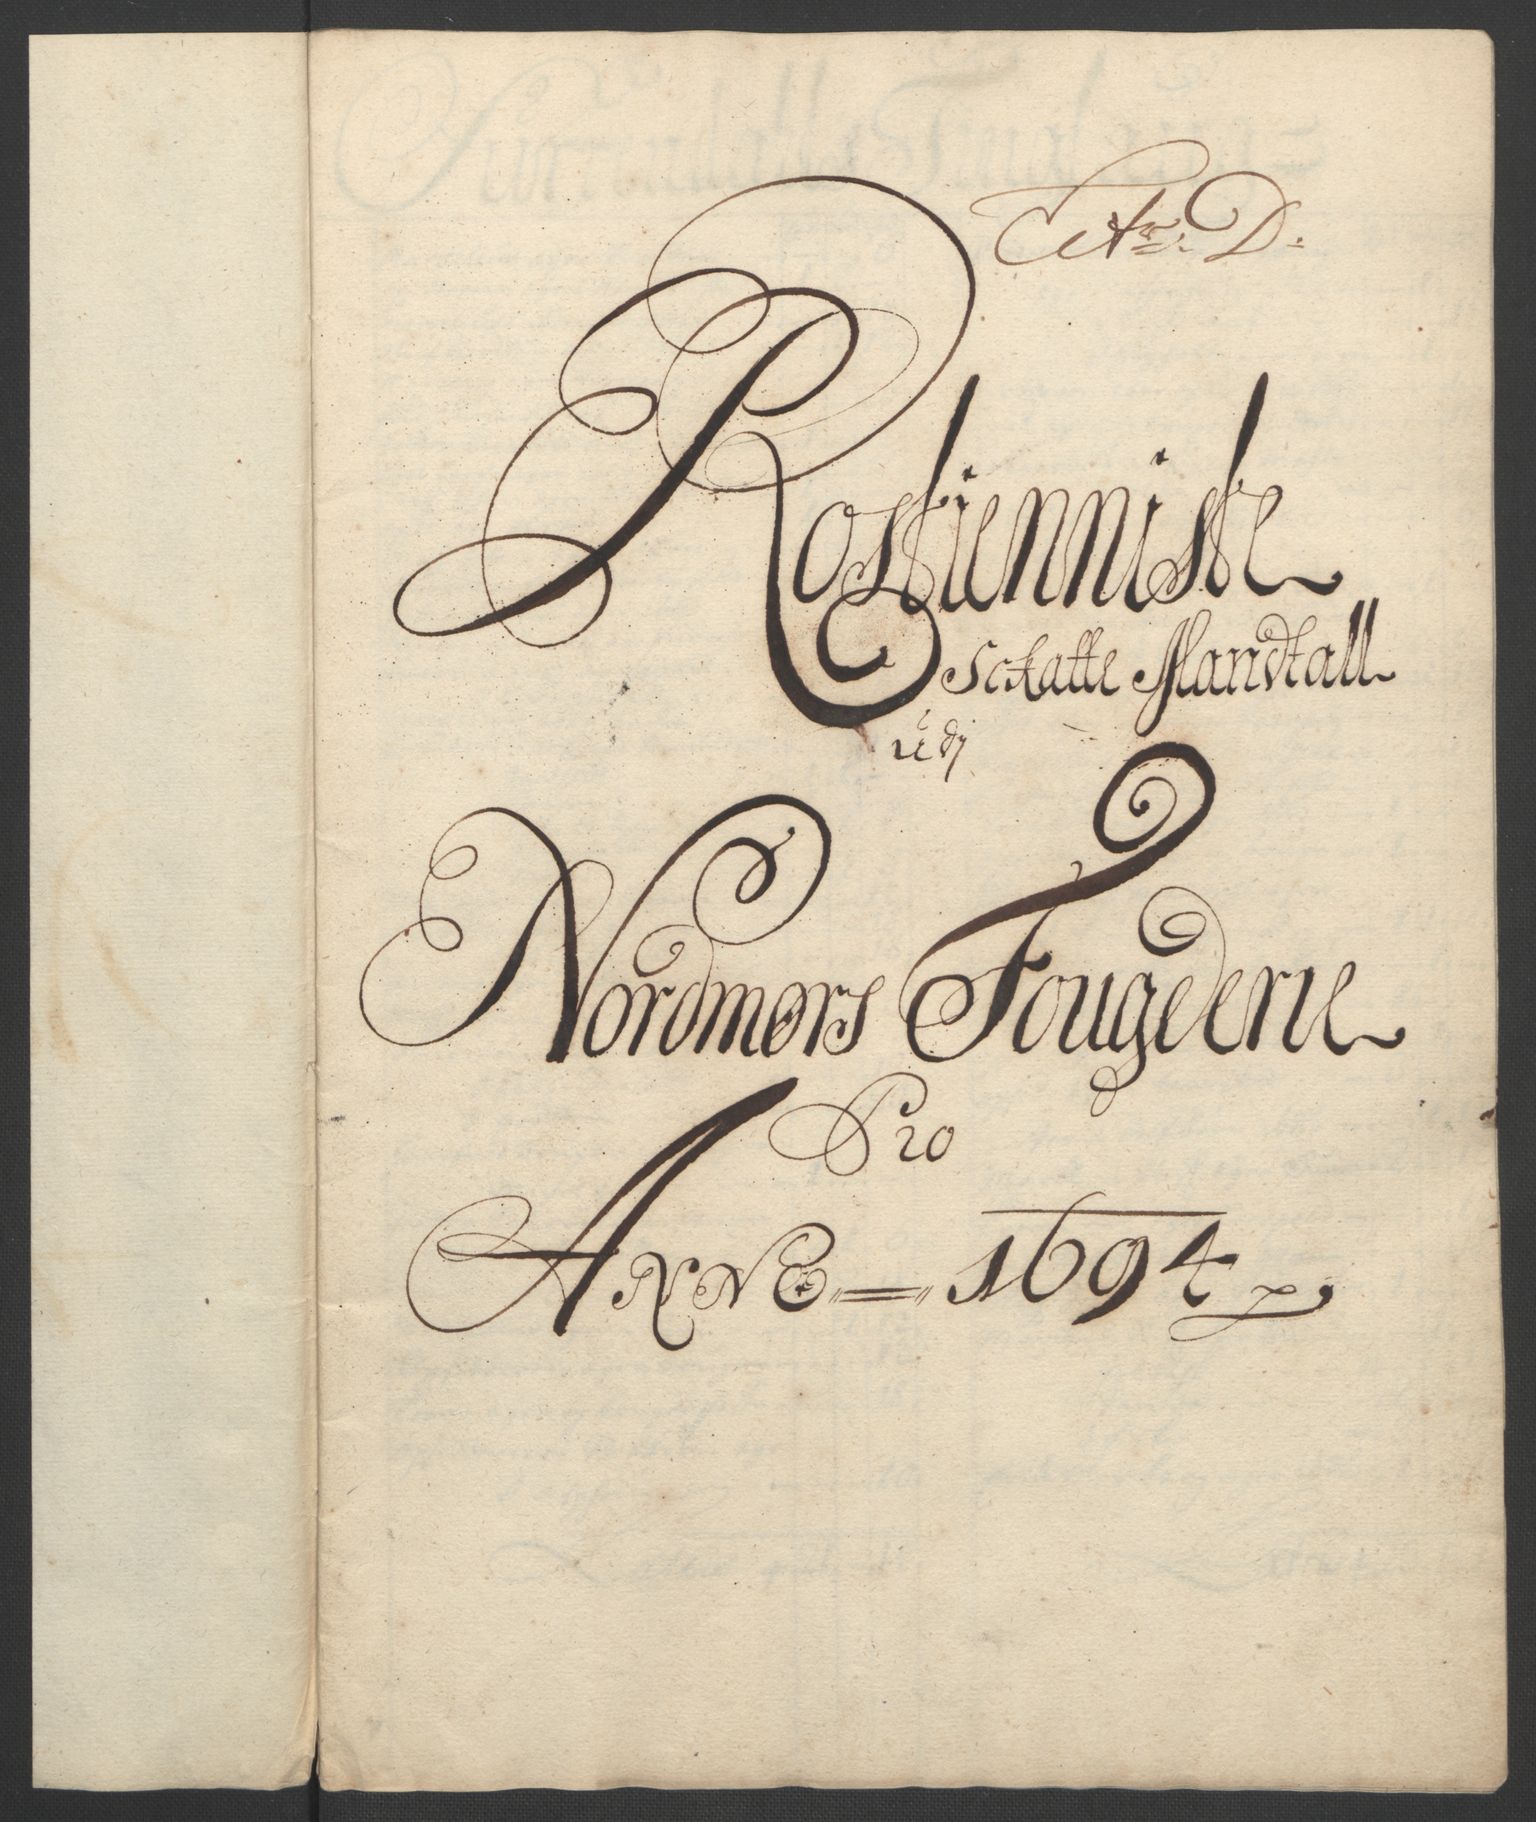 Litr: D:
Rostienniste
Schatte Mandtall
udj
Nordmørs Fougderie
Pro
ANNO 1694